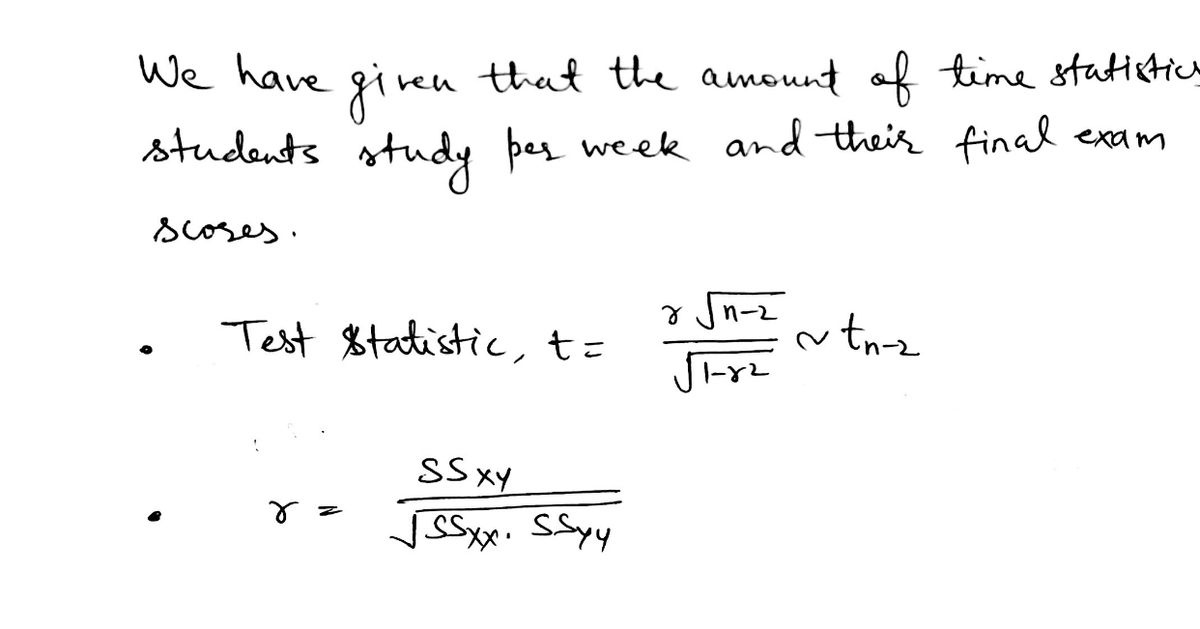 We have given that the amount of time statistics
students study per week and their final exam
scores.
• Test Statistic, t = r √n-2 / √1-r2 ~ tn-2
• r = SSxy / √SSxx . SSyy